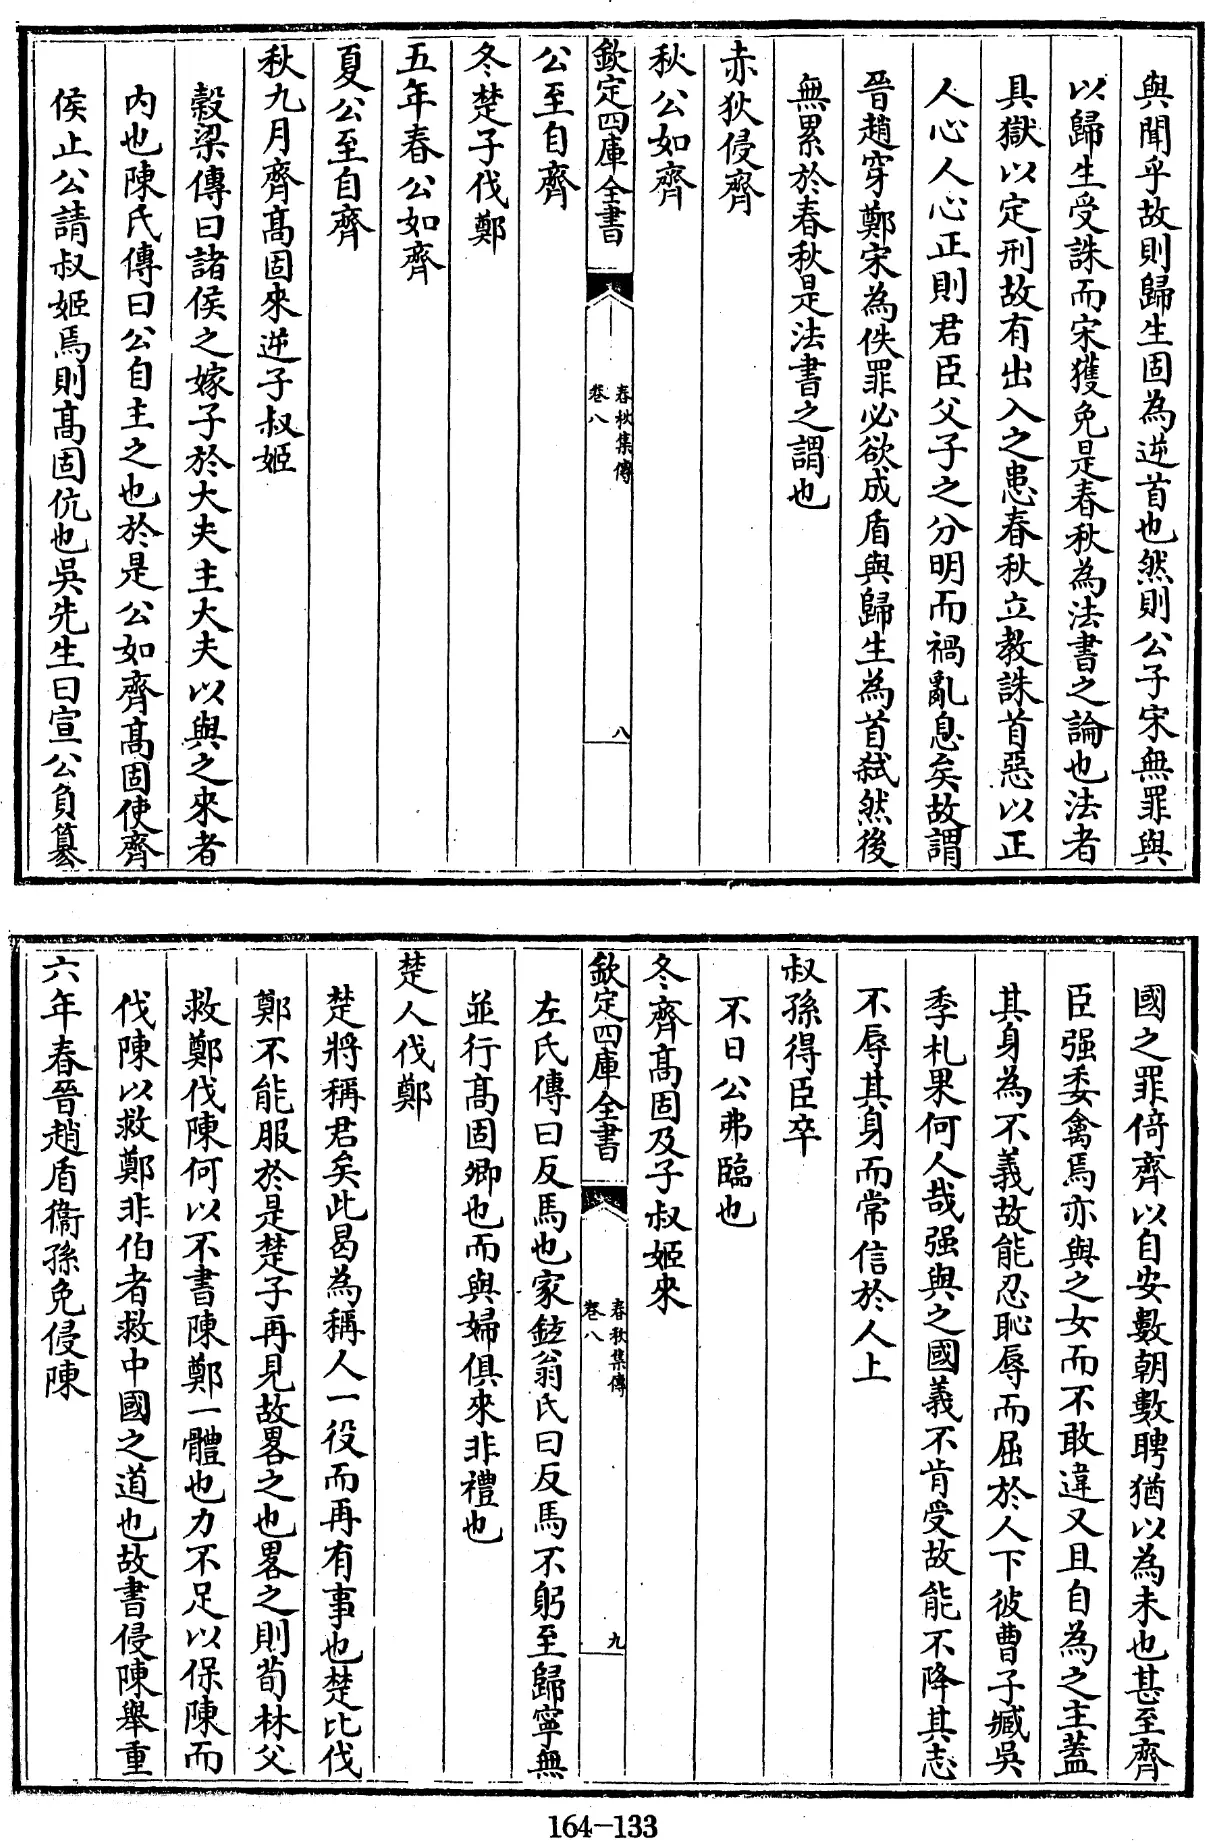 與聞乎故則歸生固為逆首也然則公子宋無罪與
以歸生受誅而宋獲免是春秋為法書之論也法者
具獄以定刑故有出入之患春秋立教誅首惡以正
人心人心正則君臣父子之分明而禍亂息矣故謂
晉趙穿鄭宋為佚罪必欲成盾與歸生為首弑然後
無累於春秋是法書之謂也
赤狄侵齊
秋公如齊
欽定四庫全書
春秋集傳
卷八
八
公至自齊
冬楚子伐鄭
五年春公如齊
夏公至自齊
秋九月齊高固來逆子叔姬
穀梁傳曰諸侯之嫁子於大夫主大夫以與之來者
内也陳氏傳曰公自主之也於是公如齊高固使齊
侯止公請叔姬焉則高固伉也吳先生曰宣公負篡
國之罪倚齊以自安數朝數聘猶以為未也甚至齊
臣强委禽焉亦與之女而不敢違又且自為之主蓋
其身為不義故能忍恥辱而屈於人下彼曹子臧吳
季札果何人哉强與之國義不肯受故能不降其志
不辱其身而常信於人上
叔孫得臣卒
不日公弗臨也
冬齊高固及子叔姬來
欽定四庫全書
春秋集傳
卷八
九
左氏傳曰反馬也家鉉翁氏曰反馬不躬至歸寧無
並行高固卿也而與婦俱來非禮也
楚人伐鄭
楚將稱君矣此曷為稱人一役而再有事也楚比伐
鄭不能服於是楚子再見故畧之也畧之則荀林父
救鄭伐陳何以不書陳鄭一體也力不足以保陳而
伐陳以救鄭非伯者救中國之道也故書侵陳舉重
六年春晉趙盾衞孫免侵陳
164-133